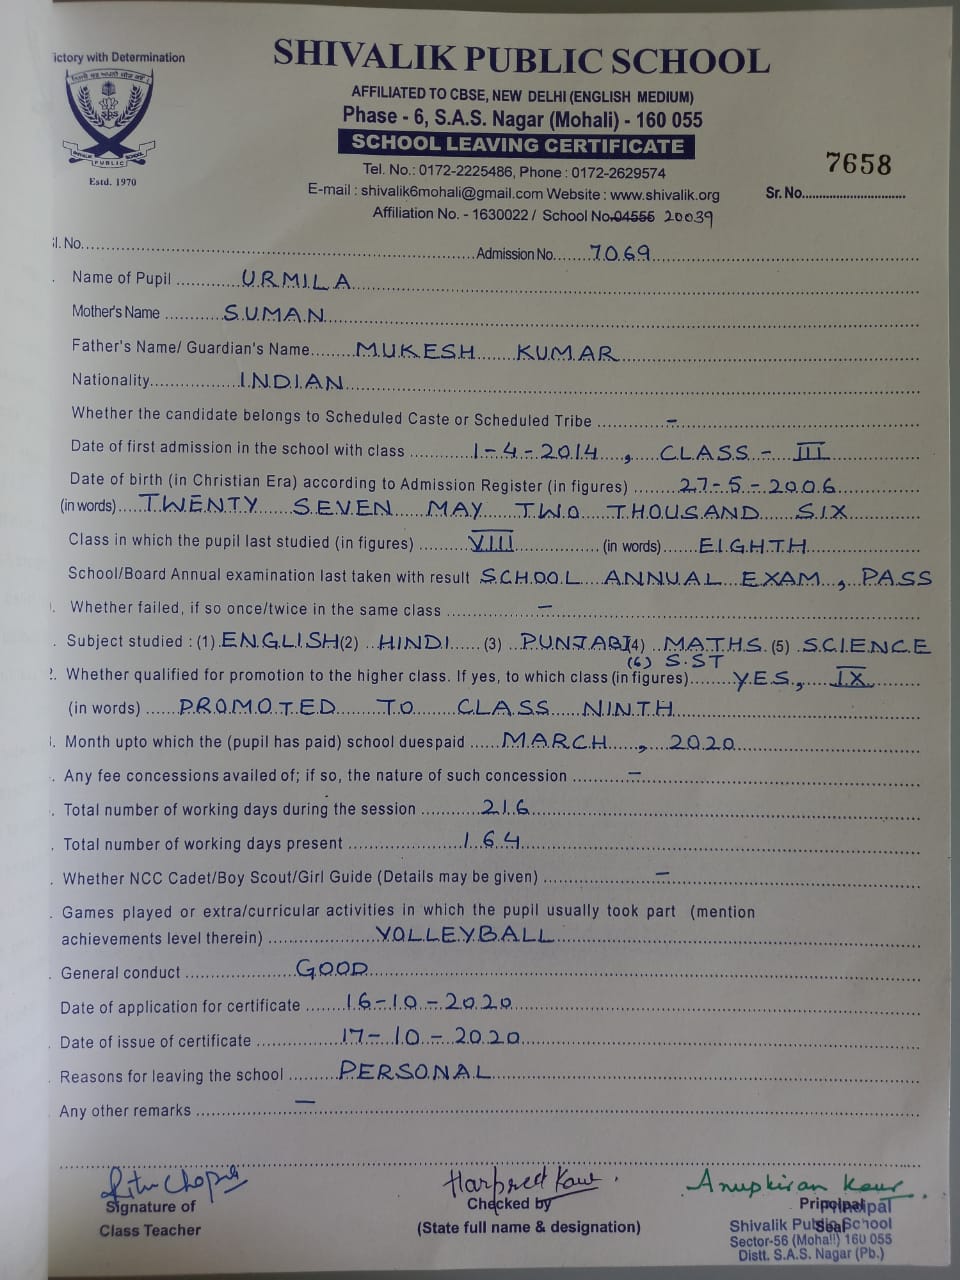 ictory with Determination
SHIVALIK PUBLIC SCHOOL
AFFILIATED TO CBSE, NEW DELHI (ENGLISH MEDIUM)
Phase - 6, S.A.S. Nagar (Mohali) - 160 055
SCHOOL LEAVING CERTIFICATE
PUBLIC
Estd. 1970
Tel. No.: 0172-2225486, Phone : 0172-2629574
E-mail : shivalik6mohali@gmail.com Website : www.shivalik.org
Affiliation No. - 1630022 / School No.04555 20039
7658
Sr. No..............................
l. No.......................... Admission No. 7069
Name of Pupil URMILA
Mother's Name SUMAN
Father's Name/ Guardian's Name MUKESH KUMAR
Nationality INDIAN
Whether the candidate belongs to Scheduled Caste or Scheduled Tribe –
Date of first admission in the school with class 1-4-2014, CLASS - III
Date of birth (in Christian Era) according to Admission Register (in figures) 27-5-2006
(in words) TWENTY SEVEN MAY TWO THOUSAND SIX
Class in which the pupil last studied (in figures) VIII (in words) EIGHTH
School/Board Annual examination last taken with result SCHOOL ANNUAL EXAM, PASS
Whether failed, if so once/twice in the same class –
Subject studied : (1) ENGLISH (2) HINDI (3) PUNJABI (4) MATHS (5) SCIENCE
(6) S.ST
Whether qualified for promotion to the higher class. If yes, to which class (in figures) YES, IX
(in words) PROMOTED TO CLASS NINTH
Month upto which the (pupil has paid) school duespaid MARCH, 2020
Any fee concessions availed of; if so, the nature of such concession –
Total number of working days during the session 216
Total number of working days present 164
Whether NCC Cadet/Boy Scout/Girl Guide (Details may be given) –
Games played or extra/curricular activities in which the pupil usually took part (mention
achievements level therein) VOLLEYBALL
General conduct GOOD
Date of application for certificate 16-10-2020
Date of issue of certificate 17-10-2020
Reasons for leaving the school PERSONAL
Any other remarks –
Ritu Chopra Harpreet Kaur. Anupkiran Kaur.
Signature of Checked by Principal Principal
Class Teacher (State full name & designation) Seal
Shivalik Public School
Sector-56 (Mohali) 160 055
Distt. S.A.S. Nagar (Pb.)